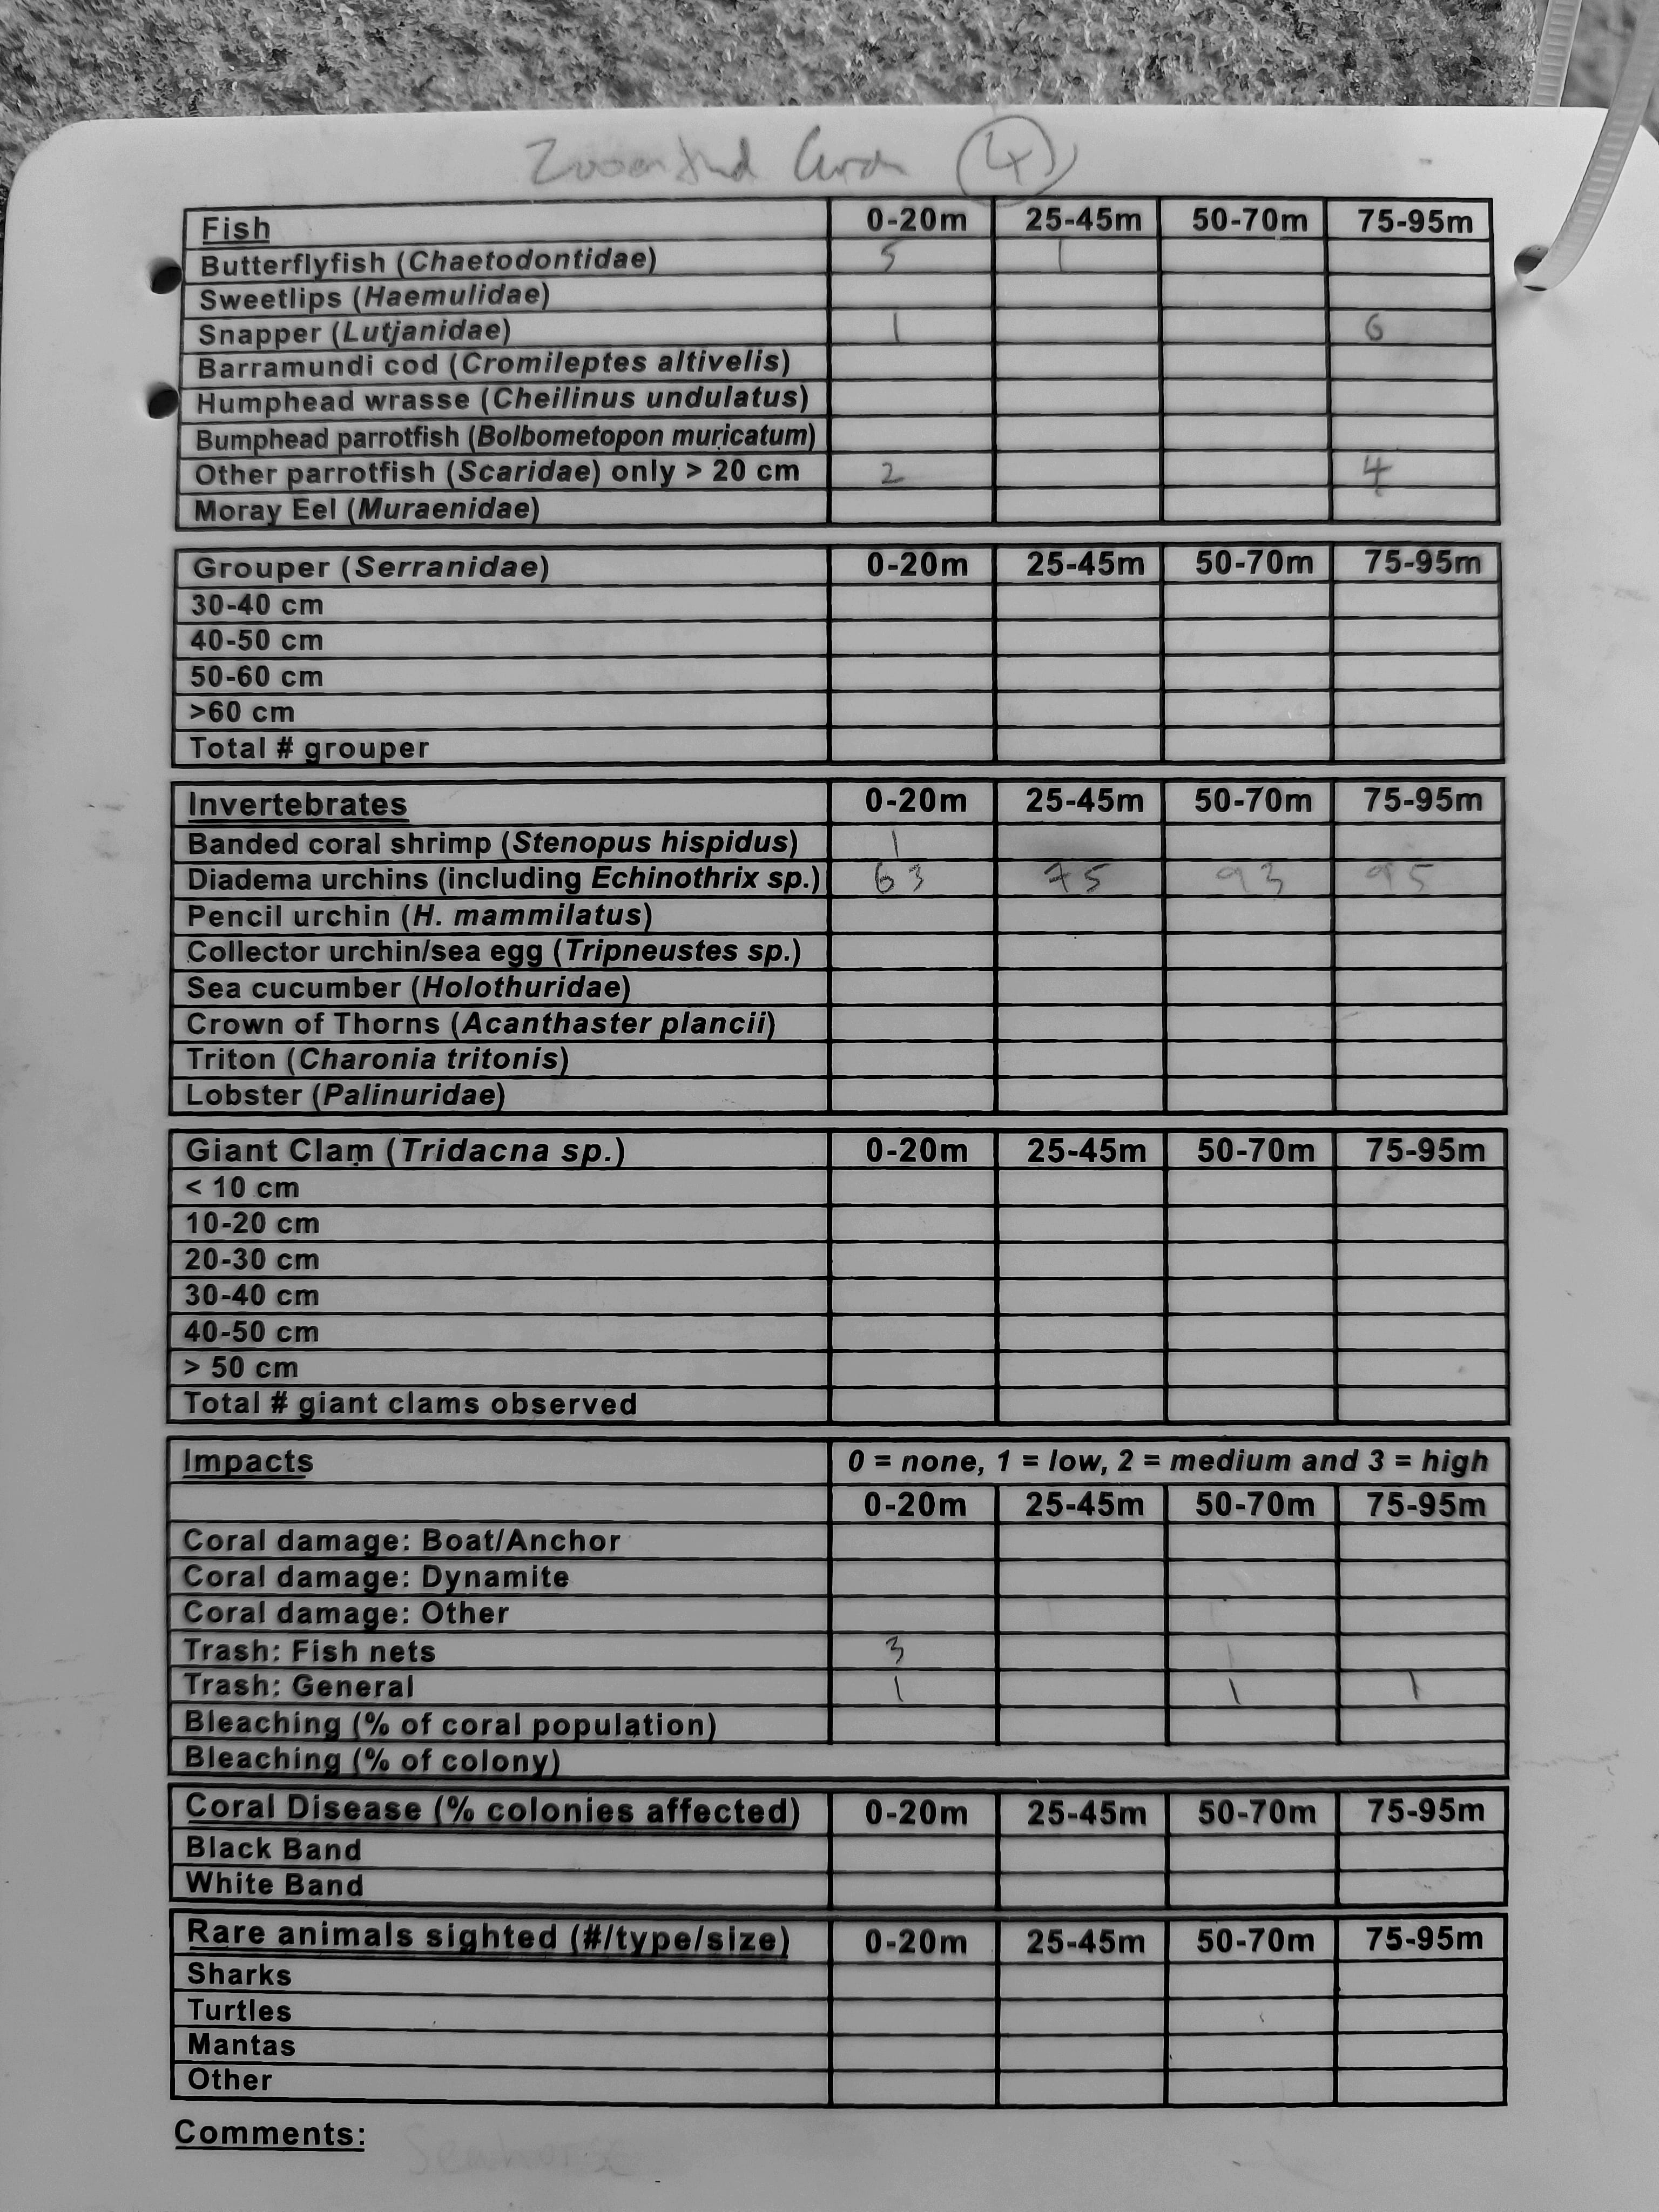 4
Fish 0-20m 25-45m 50-70m 75-95m
Butterflyfish (Chaetodontidae) 5 1
Sweetlips (Haemulidae)
Snapper (Lutjanidae) 1 6
Barramundi cod (Cromileptes altivelis)
Humphead wrasse (Cheilinus undulatus)
Bumphead parrotfish (Bolbometopon muricatum)
Other parrotfish (Scaridae) only > 20 cm 2 4
Moray Eel (Muraenidae)
Grouper (Serranidae) 0-20m 25-45m 50-70m 75-95m
30-40 cm
40-50 cm
50-60 cm
>60 cm
Total # grouper
Invertebrates 0-20m 25-45m 50-70m 75-95m
Banded coral shrimp (Stenopus hispidus) 1
Diadema urchins (including Echinothrix sp.) 63 75 93 95
Pencil urchin (H. mammilatus)
Collector urchin/sea egg (Tripneustes sp.)
Sea cucumber (Holothuridae)
Crown of Thorns (Acanthaster plancii)
Triton (Charonia tritonis)
Lobster (Palinuridae)
Giant Clam (Tridacna sp.) 0-20m 25-45m 50-70m 75-95m
< 10 cm
10-20 cm
20-30 cm
30-40 cm
40-50 cm
> 50 cm
Total # giant clams observed
Impacts 0 = none, 1 = low, 2 = medium and 3 = high
0-20m 25-45m 50-70m 75-95m
Coral damage: Boat/Anchor
Coral damage: Dynamite
Coral damage: Other
Trash: Fish nets 3 1
Trash: General 1 1 1
Bleaching (% of coral population)
Bleaching (% of colony)
Coral Disease (% colonies affected) 0-20m 25-45m 50-70m 75-95m
Black Band
White Band
Rare animals sighted (#/type/size) 0-20m 25-45m 50-70m 75-95m
Sharks
Turtles
Mantas
Other
Comments: Seahorse